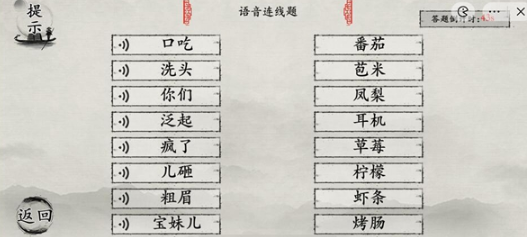 提示
语音连线题
口吃 番茄
洗头 苞米
你们 凤梨
泛起 耳机
疯了 草莓
儿砸 柠檬
粗眉 虾条
宝妹儿 烤肠
返回